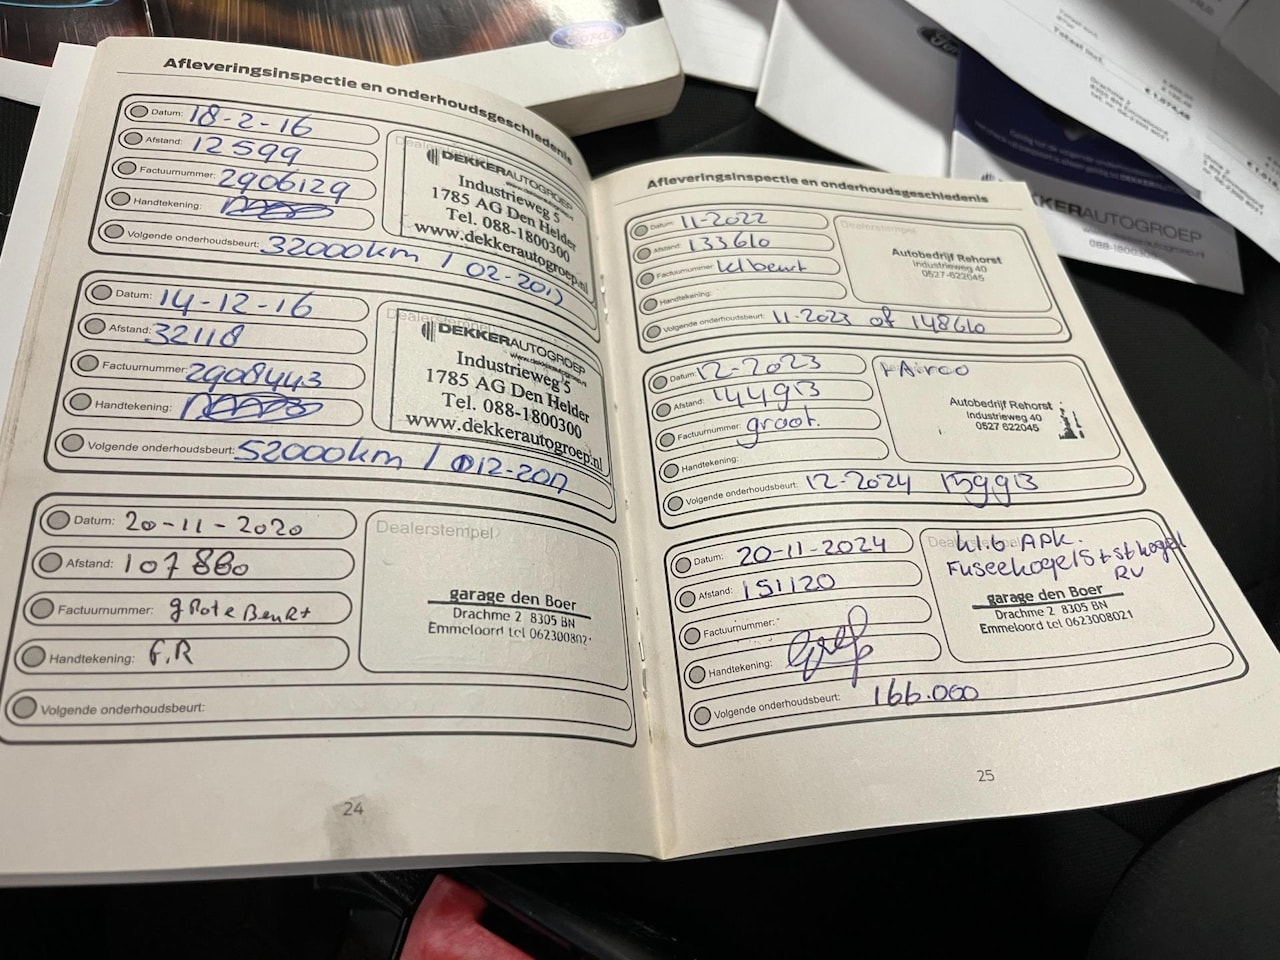 Afleveringsinspectie en onderhoudsgeschiedenis
Datum: 18-2-16
Afstand: 12599
Factuurnummer: 2906129
Handtekening:
Volgende onderhoudsbeurt: 32000km / 02-2017
DEKKERAUTOGROEP
Industrieweg 5
1785 AG Den Helder
Tel. 088-1800300
www.dekkerautogroep.nl
Datum: 14-12-16
Afstand: 32118
Factuurnummer: 2908443
Handtekening:
Volgende onderhoudsbeurt: 52000km / 012-2017
DEKKERAUTOGROEP
Industrieweg 5
1785 AG Den Helder
Tel. 088-1800300
www.dekkerautogroep.nl
Datum: 20-11-2020
Afstand: 107880
Factuurnummer: grote Beurt
Handtekening: F.R
Volgende onderhoudsbeurt:
Dealerstempel
garage den Boer
Drachme 2 8305 BN
Emmeloord tel 06230802
24
Afleveringsinspectie en onderhoudsgeschiedenis
Datum: 11-2022
Afstand: 133610
Factuurnummer: kl beurt
Handtekening:
Volgende onderhoudsbeurt: 11-2023 of 148610
Dealerstempel
Autobedrijf Rehorst
Industrieweg 40
0527-622045
Datum: 12-2023
Afstand: 144913
Factuurnummer: groot.
Handtekening:
Volgende onderhoudsbeurt: 12-2024 159913
+Airco
Autobedrijf Rehorst
Industrieweg 40
0527 622045
Datum: 20-11-2024
Afstand: 151120
Factuurnummer:
Handtekening:
Volgende onderhoudsbeurt: 166.000
kl.b APK.
Fuseekogel + st kogel
RV
garage den Boer
Drachme 2 8305 BN
Emmeloord tel 0623008021
25
Ford
KKERAUTOGROEP
088-1800